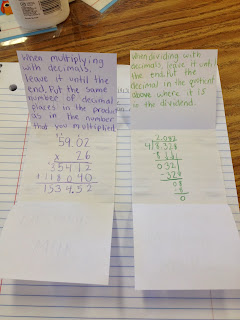 when multiplying
with decimals,
leave it until the
end. Put the same
number of decimal
places in the product
as in the number
that you multiplied.
59.02
x 26
35412
118040
1534.52
when dividing with
decimals, leave it until
the end. Put the
decimal in the quotient
above where it is
in the dividend.
2.082
4√8.328
8
032
32
08
8
0